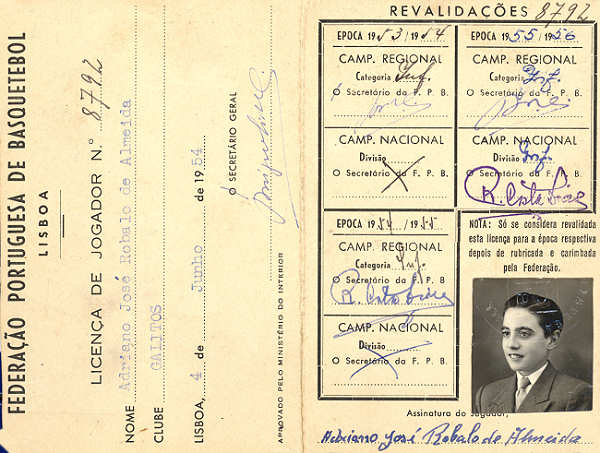 FEDERAÇÃO PORTUGUESA DE BASQUETEBOL
LISBOA
LICENÇA DE JOGADOR N.º 8792
NOME Adriano José Robalo de Almeida
CLUBE GALITOS
LISBOA, 4 de Junho de 1954
O SECRETÁRIO GERAL
APROVADO PELO MINISTÉRIO DO INTERIOR
REVALIDAÇÕES 8792
EPOCA 1953/1954
CAMP. REGIONAL
Categoria Inf.
O Secretário da F. P. B.
CAMP. NACIONAL
Divisão
O Secretário da F. P. B.
EPOCA 1955/1956
CAMP. REGIONAL
Categoria Inf.
O Secretário da F. P. B.
CAMP. NACIONAL
Divisão Inf.
O Secretário da F. P. B.
EPOCA 1954/1955
CAMP. REGIONAL
Categoria Inf.
O Secretário da F. P. B.
CAMP. NACIONAL
Divisão
O Secretário da F. P. B.
NOTA: Só se considera revalidada
esta licença para a época respectiva
depois de rubricada e carimbada
pela Federação.
Assinatura do Jogador,
Adriano José Robalo de Almeida